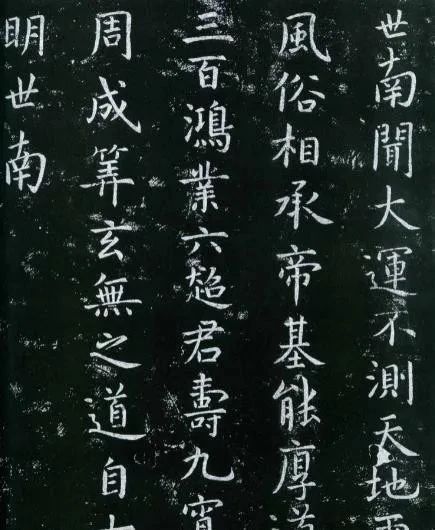 世南聞大運不測天地
風俗相承帝基能厚道
三百鴻業六超君壽九
周成筭玄無之道自
明世南